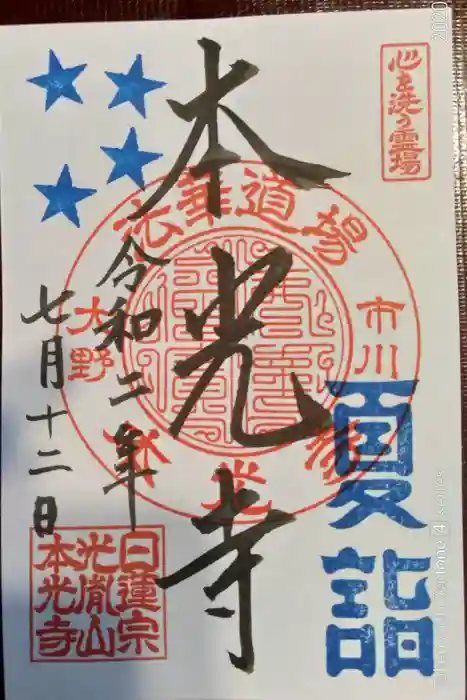 心を洗う霊場
本光寺
法華道場
市川
大野
本光寺
夏詣
令和二年
七月十二日
日蓮宗
光胤山
本光寺
2020